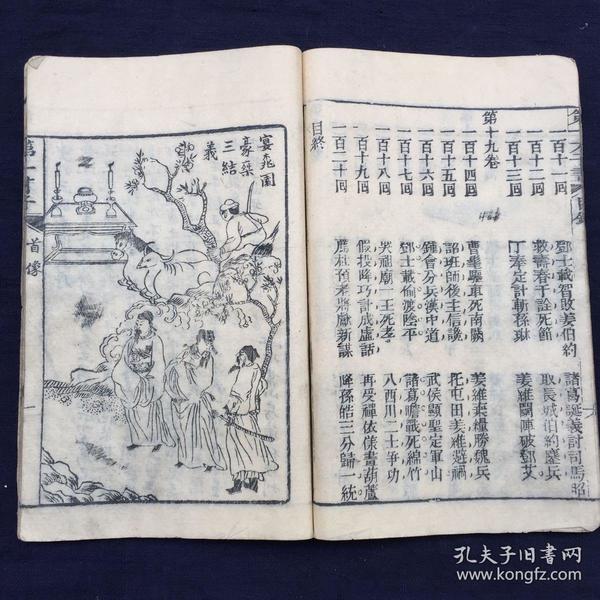 一百十一回 鄧士載智敗姜伯約 諸葛誕義討司馬昭
一百十二回 救壽春于詮死節 取長城伯約鏖兵
一百十三回 丁奉定計斬孫琳 姜維鬬陣破鄧艾
第十九卷
一百十四回 曹髦驅車死南闕 姜維棄糧勝魏兵
一百十五回 詔班師後主信讒 托屯田姜維避禍
一百十六回 鍾會分兵漢中道 武侯顯聖定軍山
一百十七回 鄧士載偷渡陰平 諸葛瞻戰死綿竹
一百十八回 哭祖廟一王死孝 入西川二士爭功
一百十九回 假投降巧計成虛話 再受禪依樣畫葫蘆
一百二十回 薦杜預老將獻新謀 降孫皓三分歸一統
目終
宴桃園
豪桀
三結
義
第一才子
首像
孔夫子旧书网
www.kongfz.com